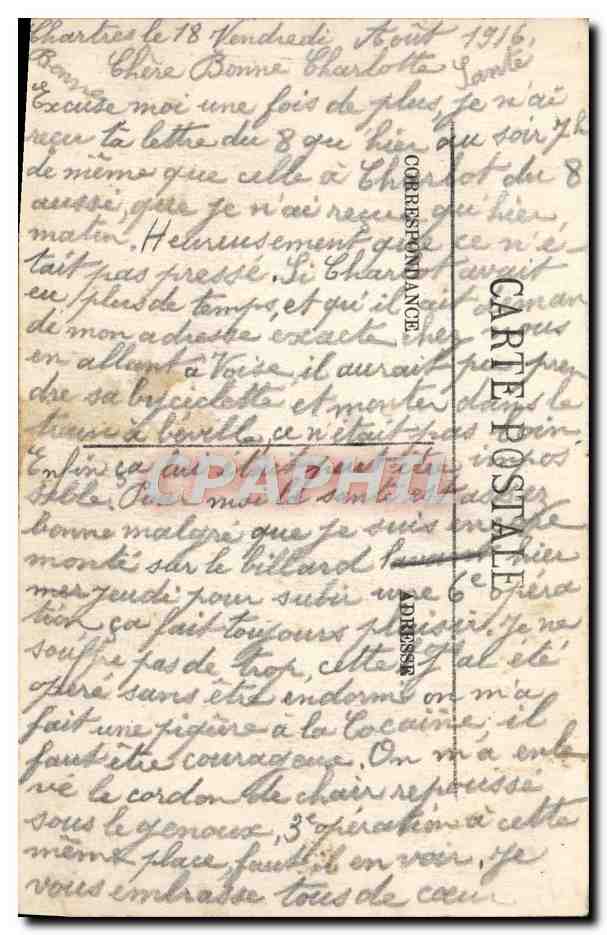 Chartres le 18 Vendredi Août 1916.
Bonne Chère Bonne Charlotte Santé
Excuse moi une fois de plus, je n'ai
reçu ta lettre du 8 qu'hier au soir 7h
de même que celle à Charlot du 8
aussi, que je n'ai reçue qu'hier
matin. Heureusement que ce n'é-
tait pas pressé. Si Charlot avait
eu plus de temps, et qu'il ait deman
dé mon adresse exacte chez vous
en allant à Voise, il aurait pu pren
dre sa byciclette et monter dans le
train à béville, ce n'était pas loin
Enfin ça lui était peut être impos
sible. Pour moi la santé est assez
bonne malgré que je suis encore
monté sur le billard hier
mer jeudi pour subir une 6e opéra
tion ça fait toujours plaisir. Je ne
souffre pas de trop, cette j'ai été
opéré sans être endormi on m'a
fait une piqûre à la Cocaïne, il
faut être courageux. On m'a enle
vé le cordon de chair repoussé
sous le genoux, 3e opération à cette
même place, faut il en voir. Je
vous embrasse tous de cœur
CARTE POSTALE
CORRESPONDANCE
ADRESSE
CPAPHIL